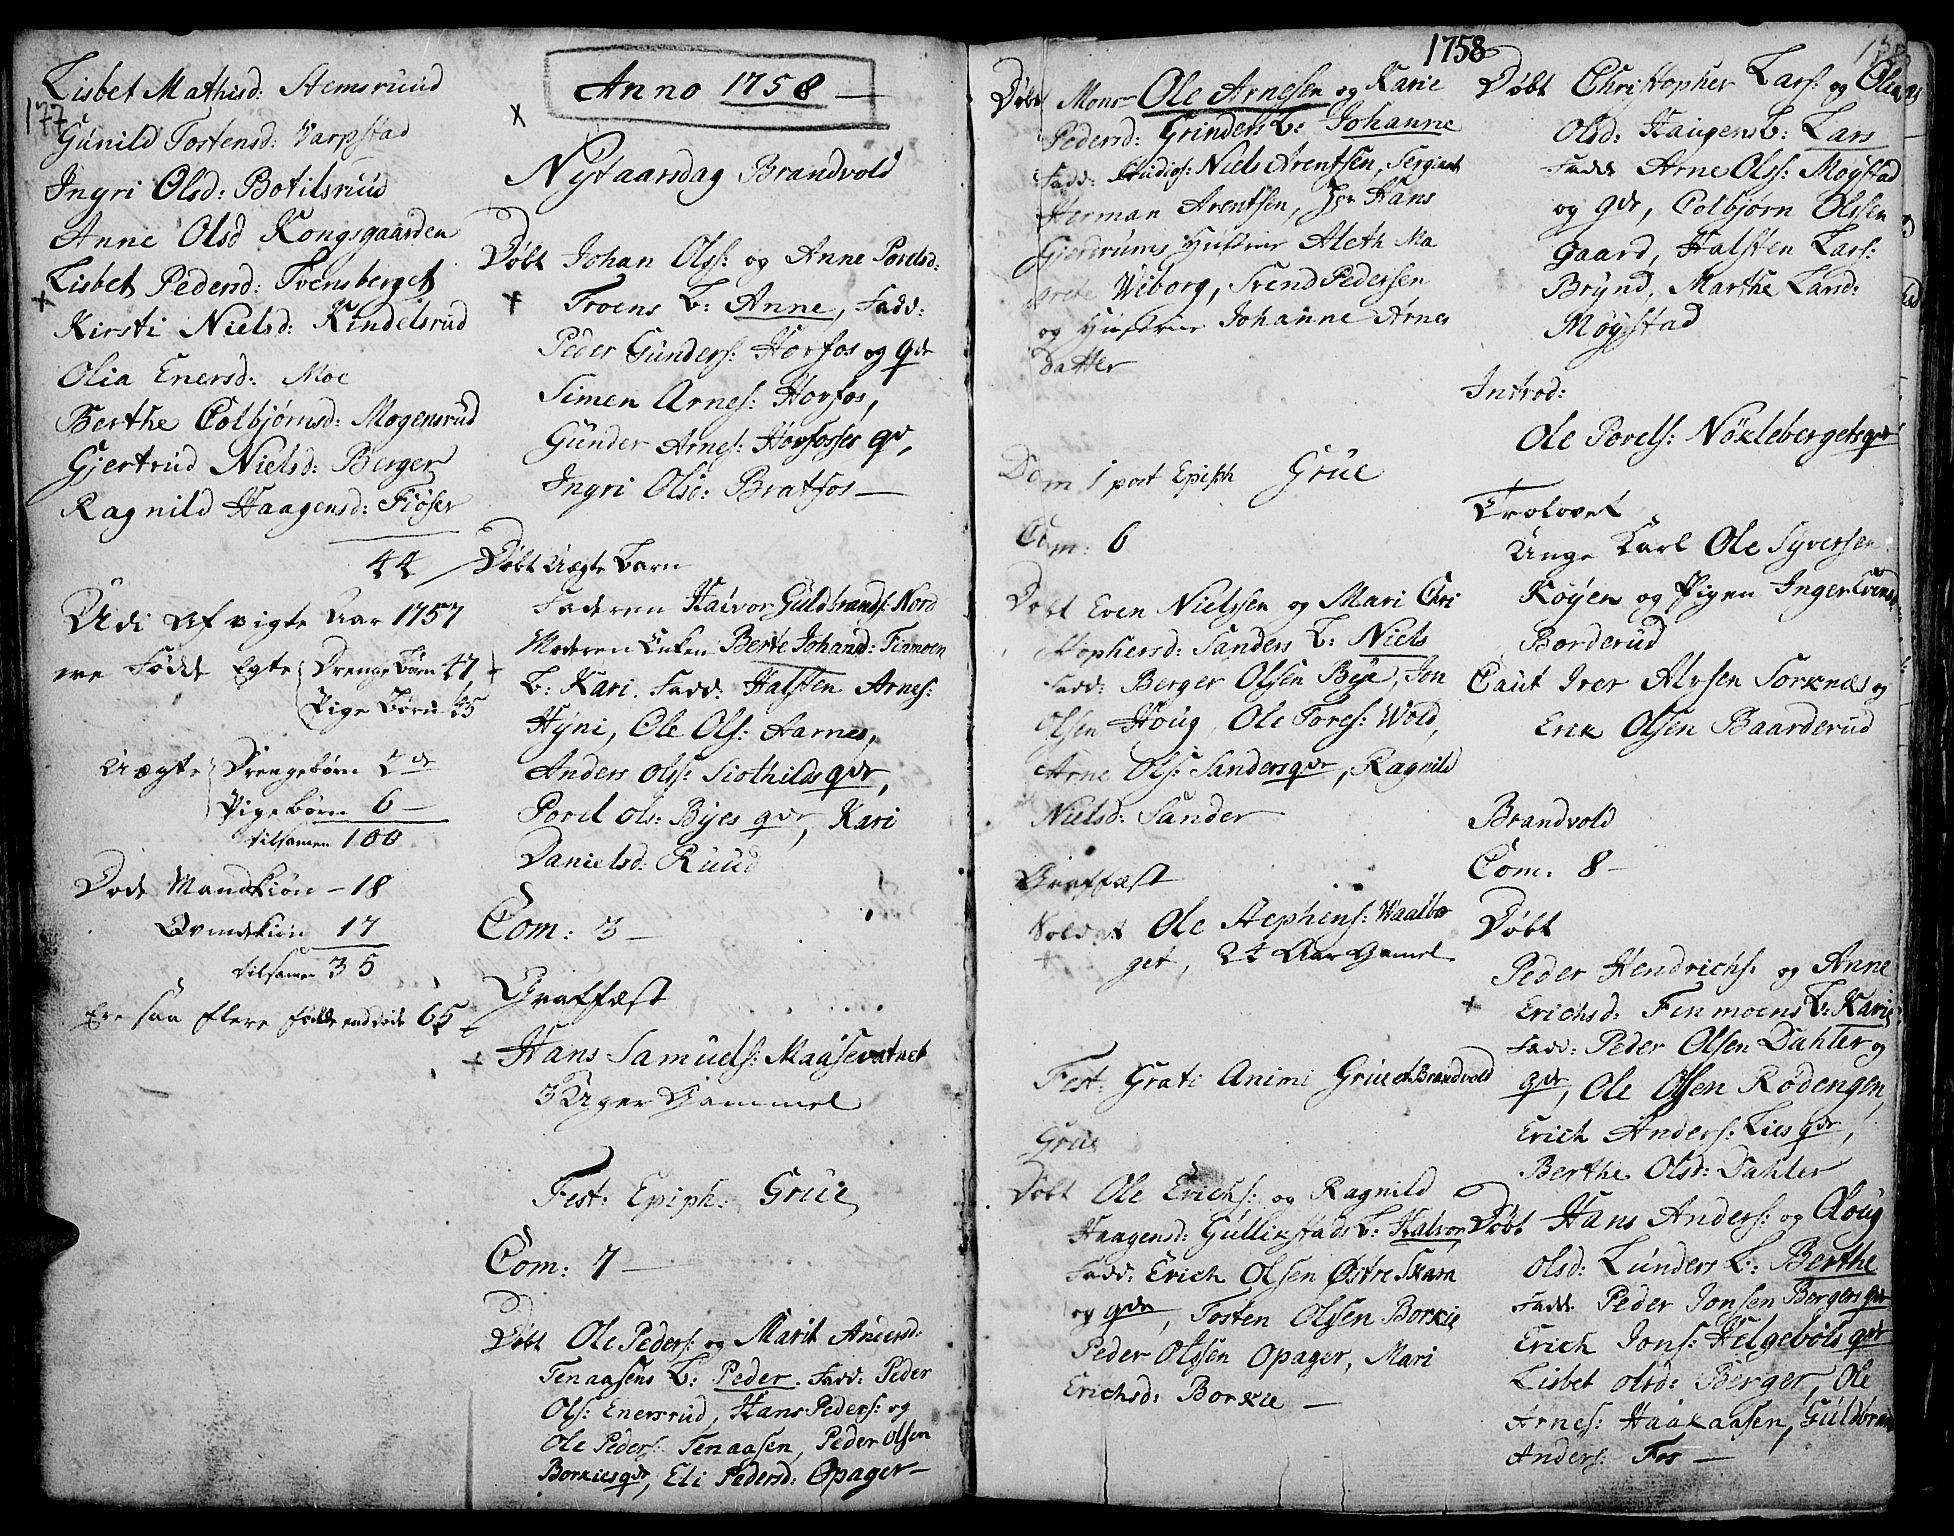 177
Lisbet Mathisd: Stemsruud
Gunild Tostensd: Varpstad
Ingri Olsd: Botilsruud
Anne Olsd Kongsgaarden
Lisbet Pedersd: Tvensberget
Kirsti Nielsd: Kindelsrud
Olia Enersd: Moe
Berthe Colbjørnsd: Mogensrud
Gjertrud Nielsd: Berger
Ragnild Haagensd: Fiøser
44
Udi Afvigte Aar 1757
ere Fødde Egte Drenge Børn 47
Pige Børn 45
Uægte Drengebørn 2de
Pigebørn 6 —
tilsamen 100
Døde Mandkiøn — 18
Qvindekiøn 17
tilsamen 35
Ere saa flere fødde end døde 65
Anno 1758 —
Nytaarsdag Brandvold
Døbt Johan Olss: og Anne Povelsd:
Troens B: Anne, Fadd:
Peder Gunders: Horfos og qde
Simen Arnes: Horfos,
Gunder Arnes: Horfosses qv,
Ingri Olsd: Bratfos —
Døbt Uægte Barn
Faderen Halvor Guldbrands: Nord
Moderen Enken Berte Johansd: Finmoen
B: Kari. Fadd: Halsten Arnes:
Hyni, Ole Ols: Aarnes,
Anders Olss: Siothilds qde,
Povel Ols: Byes qde, Kari
Danielsd: Ruud
Com: 3 —
Graffæst
Hans Samuels: Maasevatnet
3 Uger Gammel
Fest: Epiph: Grue
Com: 7 —
Døbt Ole Peders: og Marit Andersd:
Tenaasens B: Peder. Fadd: Peder
Ols: Enersrud, Hans Peders: og
Ole Peders: Tenaasen, Peder Olsen
Borkies qde, Eli Pedersd: Opager —
1758
Døbt Mons Ole Arnesen og Karie
Pedersd: Grinders B: Johanne
Fadd: Studios: Niels Arentsen, Sergiant
Herman Arentsen, Hr Hans
Gjerdrums Hustrue Aleth Ma
grete Wiborg, Trend Pedersen
og Hustrue Johanne Arnes
Datter
Dom 1 post Epiph Grue
Com: 6
Døbt Even Nielssen og Mari Chri
stophersd: Sanders B: Niels
Fadd: Berger Olssen Bye, Jon
Olsen Houg, Ole Tores: Wold,
Arne Ols: Sanders qde, Ragnild
Nielsd: Sander
Graffæst
Soldat Ole Stephens: Waalber
get, 24 Aar Gamel
Fest: Grati Animi Grue et Brandvold
Grue
Døbt Ole Erichs: og Ragnild
Haagensd: Gullikstads B: Halvor
Fadd: Erich Olsen Østre Skara
og qde, Tosten Olssen Borkie
Peder Olssen Opager, Mari
Erichsd: Borkie —
Døbt Christopher Lars: og
Olsd: Haugens B: Lars
Fadd: Arne Olss: Møystad
og qde, Colbjørn Olssen
Gaard, Halsten Lars:
Brynd, Marthe Larsd:
Møystad
Introd:
Ole Povels: Nøklebergets qde
Trolovet
Unge Karl Ole Syversen
Køyen og Pigen Inger
Borderud
Caut Iver Alvsen Sorknæs og
Erik Olsen Baarderud
Brandvold
Com: 8 —
Døbt
Peder Hendrichs: og Anne
Erichsd: Finmoens B: Karie
Fadd: Peder Olsen Dahler og
qde, Ole Olsen Rodengen,
Erich Anders: Lies qde,
Berthe Olsd: Dahler
Døbt Hans Anders: og Aloug
Olsd: Lunders B: Berthe
Fadd: Peder Jonsen Bergers qde
Erich Jons: Helgebøls qde
Lisbet Olsd: Berger, Ole
Arnes: Haakaasen, Guldbran
Anders: Fos —